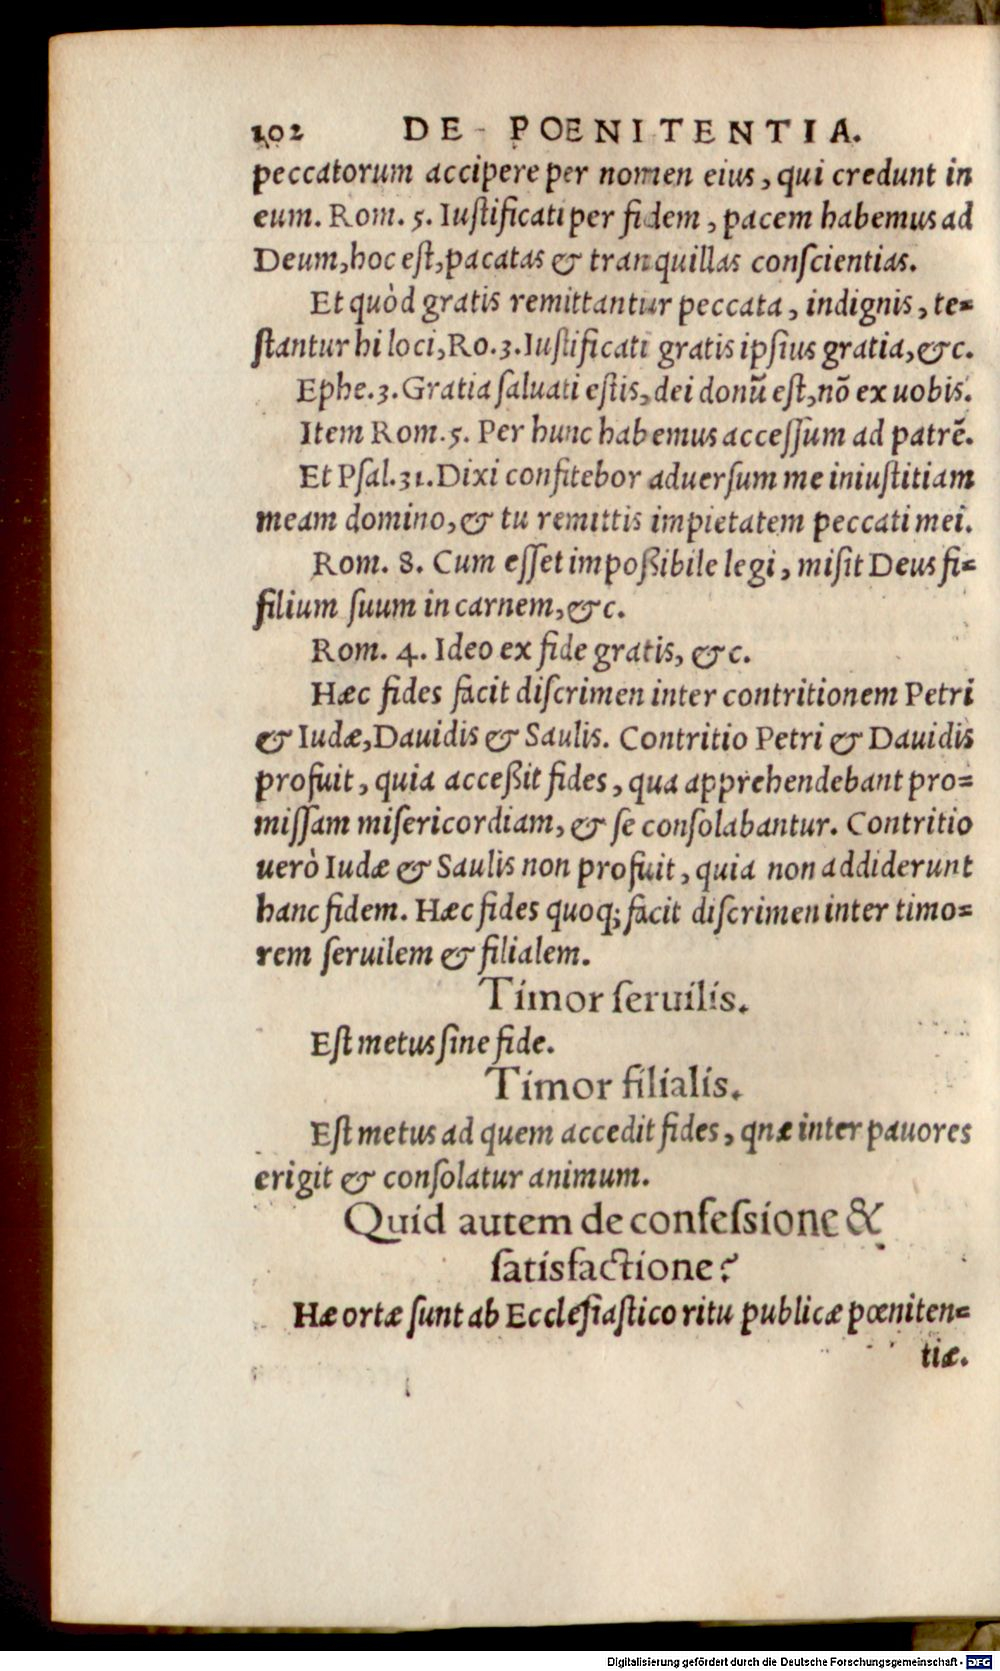 102 DE POENITENTIA.
peccatorum accipere per nomen eius, qui credunt in
eum. Rom. 5. Iustificati per fidem, pacem habemus ad
Deum, hoc est, pacatas & tranquillas conscientias.
Et quòd gratis remittantur peccata, indignis, te=
stantur hi loci, Ro. 3. Iustificati gratis ipsius gratia, &c.
Ephe. 3. Gratia saluati estis, dei donũ est, nõ ex uobis.
Item Rom. 5. Per hunc habemus accessum ad patrẽ.
Et Psal. 31. Dixi confitebor aduersum me iniustitiam
meam domino, & tu remittis impietatem peccati mei.
Rom. 8. Cum esset impoßibile legi, misit Deus fi=
filium suum in carnem, &c.
Rom. 4. Ideo ex fide gratis, &c.
Hæc fides facit discrimen inter contritionem Petri
& Iudæ, Dauidis & Saulis. Contritio Petri & Dauidis
profuit, quia acceßit fides, qua apprehendebant pro=
missam misericordiam, & se consolabantur. Contritio
uerò Iudæ & Saulis non profuit, quia non addiderunt
hanc fidem. Hæc fides quoq; facit discrimen inter timo=
rem seruilem & filialem.
Timor seruilis.
Est metus sine fide.
Timor filialis.
Est metus ad quem accedit fides, qnæ inter pauores
erigit & consolatur animum.
Quid autem de confessione &
satisfactione?
Hæ ortæ sunt ab Ecclesiastico ritu publicæ pœniten=
tiæ.
Digitalisierung gefördert durch die Deutsche Forschungsgemeinschaft - DFG